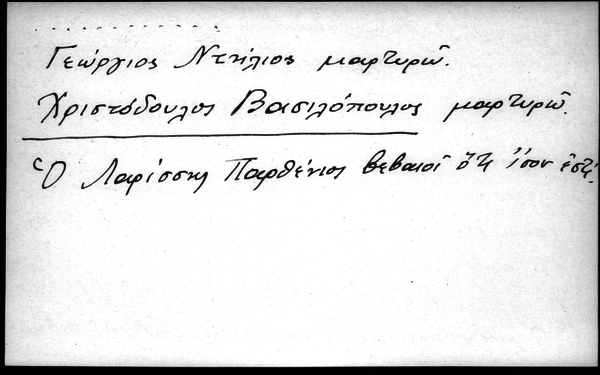 . . . . . . . . . . . . . . . .
Γεώργιος Ντήλιος μαρτυρῶ.
Χριστόδουλος Βασιλόπουλος μαρτυρῶ.
Ὁ Λαρίσσης Παρθένιος βεβαιοῖ ὅτι ἴσον ἐστί.